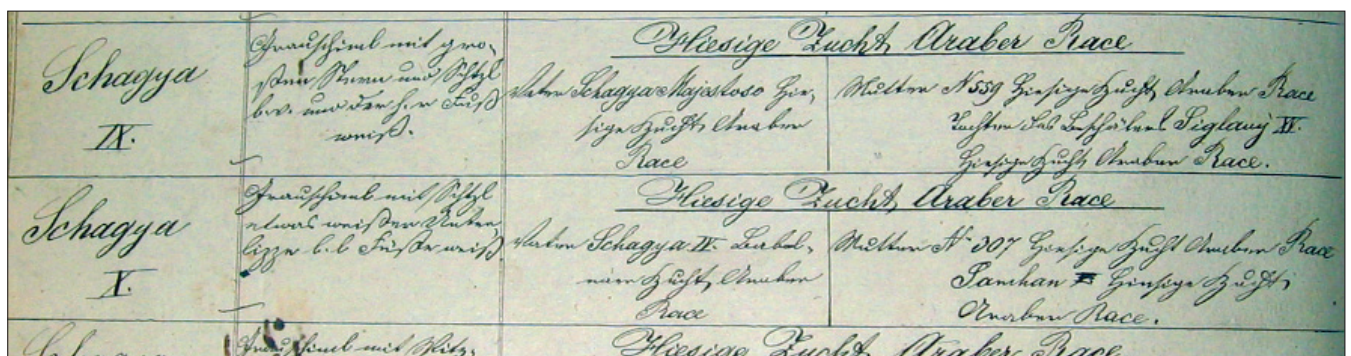 Schagya
IX.
Grauschiml mit gro-
ßen Stern und Schtzl
b. v. und der h. r Fuß
weiß.
Hiesige Zucht, Araber Race
Vater Schagya Majestoso Hie-
sige Zucht, Araber
Race
Mutter N 559 Hiesige Zucht, Araber Race
Tochter des Beschälers Siglavÿ IV.
Hiesige Zucht, Araber Race.
Schagya
X.
Grauschiml mit Schtzl
etwas weißer Unter
lippe b. b Füße weiß
Hiesige Zucht, Araber Race
Vater Schagya IV. Babol-
naer Zucht, Araber
Race
Mutter N 307 Hiesige Zucht Araber Race
Samhan Hiesige Zucht,
Araber Race.
Grauschiml mit
Hiesige Zucht, Araber Race